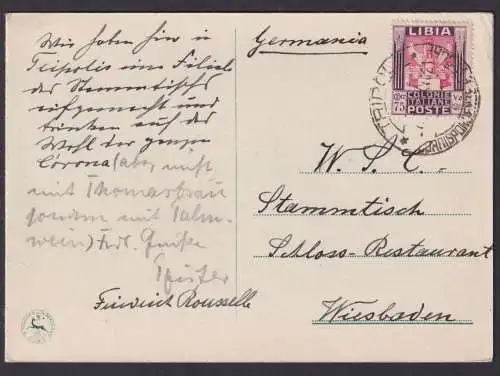 Wir haben hier in
Tripolis eine Filiale
des Stammtischs
aufgemacht und
trinken auf das
Wohl der ganzen
Corona (aber nicht
mit Thomasbräu
sondern mit Palm-
wein) Frdl. Grüsse
Friedrich Rousselle
Germania
LIBIA
CENT.
75
COLONIE
ITALIANE
POSTE
TRIPOLI
W. S. C.
Stammtisch
Schloss-Restaurant
Wiesbaden